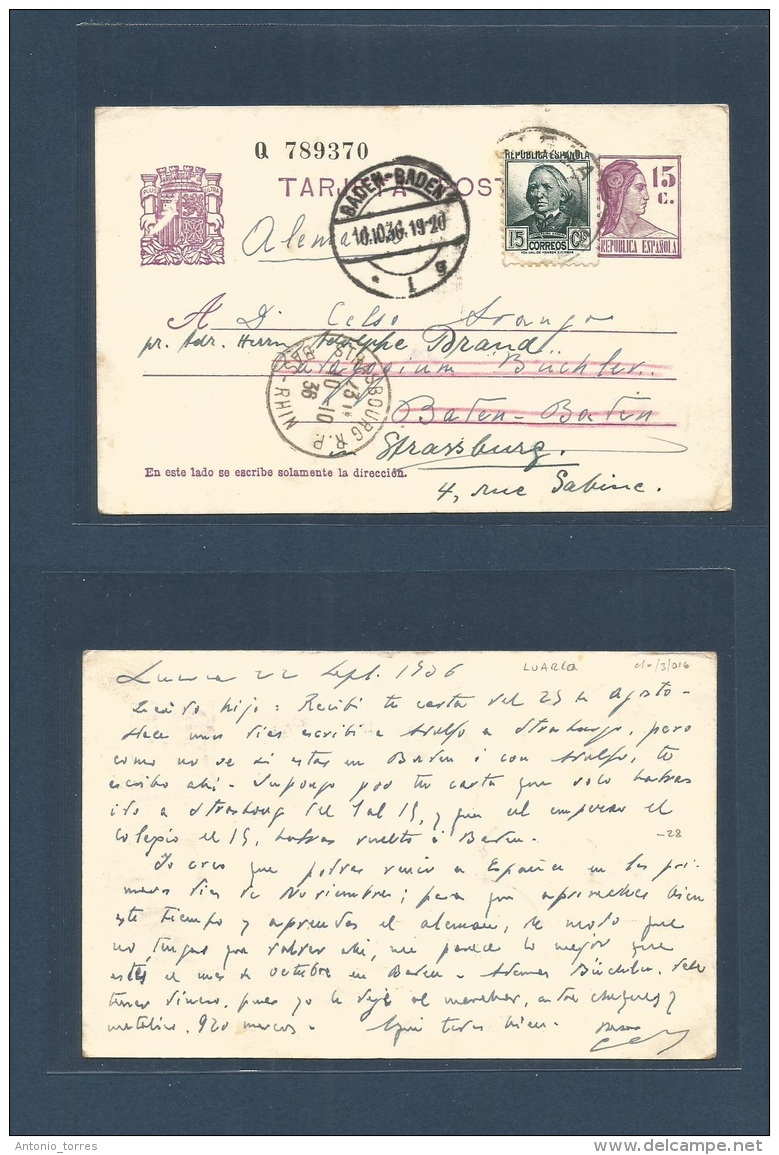 Q 789370
TARJETA POST
REPUBLICA ESPAÑOLA
15 CORREOS Cts
15 c.
REPUBLICA ESPAÑOLA
BADEN-BADEN
10.10.36.19-20
1 g
Alemania
A D. Celso Arango
pr. Adr. Herrn Adolphe Brand
Büchler
Baden-Baden
STRASBOURG R.P.
BAS-RHIN
10-10
36
in Strassburg.
En este lado se escribe solamente la dirección.
4, rue Sabine.
LUARCA
Luarca 22 Sept. 1936
Querido hijo: Recibí tu carta del 25 de Agosto-
Hace unos dias escribi a Adolfo a Strasburgo, pero
como no se si estas en Baden ó con Adolfo, te
escribo ahi - Supongo por tu carta que solo habras
ido a Strasbourg del 1 al 15, y que al empezar el
Colegio el 15, habras vuelto á Baden.
-28
Yo creo que podras venir a España en los pri-
meros dias de Noviembre; para que aproveches bien
este tiempo y aprendas el aleman, de modo que
no tengas que volver ahi, me parece lo mejor que
estés el mes de octubre en Baden - Ademas Büchler debe
tener dinero, pues yo le dejé al marchar, entre cheques y
metalico, 920 marcos - Aqui todos bien.
Antonio_torres
delcampe.net